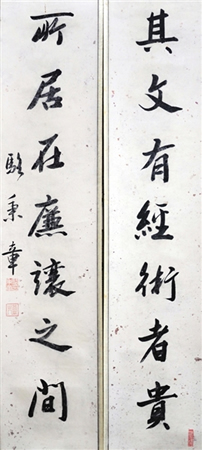 其文有經術者貴
所居在廉讓之間
駱秉章